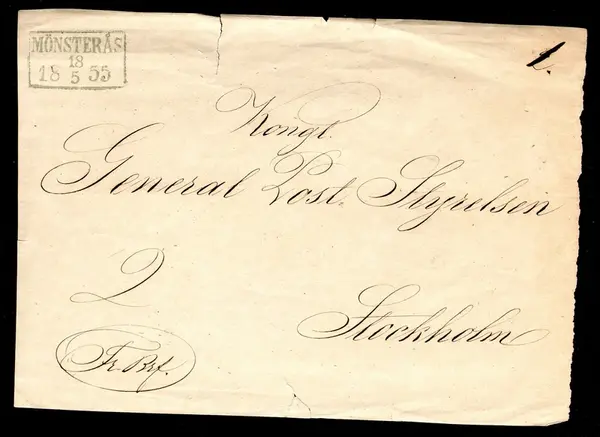 MÖNSTERÅS
18
18 5 55
2.
Kongl.
General Post. Styrelsen
2
Stockholm
Fr. Brf.